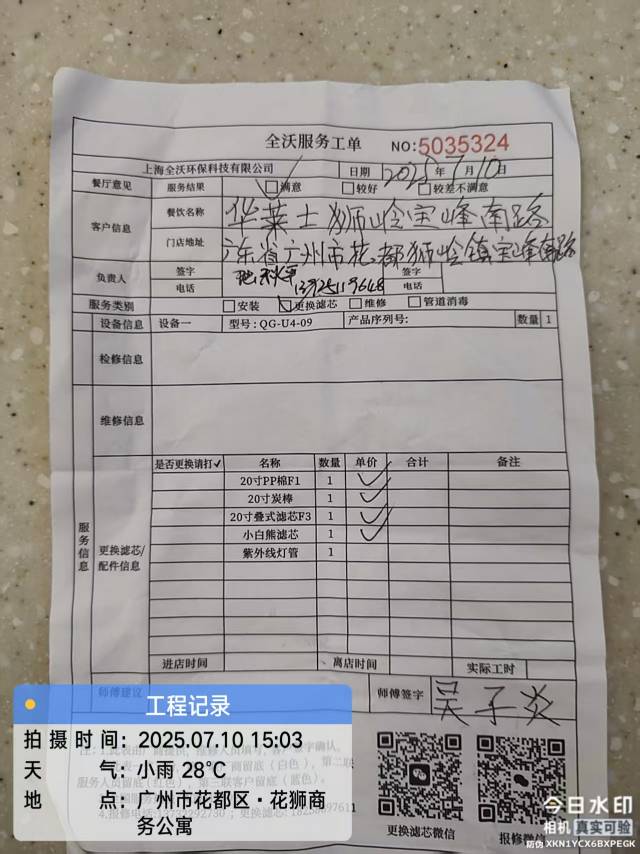 全沃服务工单 NO:5035324
上海全沃环保科技有限公司 日期 2025年7月10日
餐厅意见 服务结果 满意 较好 较差不满意
客户信息 餐饮名称 华莱士狮岭宝峰南路
门店地址 广东省广州市花都狮岭镇宝峰南路
负责人 签字 签字
电话 电话
服务类别 安装 更换滤芯 维修 管道消毒
设备信息 设备一 型号:QG-U4-09 产品序列号: 数量 1
检修信息
维修信息
服务信息
更换滤芯/配件信息
是否更换请打✓ 名称 数量 单价 合计 备注
20寸PP棉F1 1 ✓
20寸炭棒 1 ✓
20寸叠式滤芯F3 1 ✓
小白熊滤芯 1 ✓
紫外线灯管 1
进店时间 离店时间 实际工时
师傅建议 师傅签字 吴子炎
更换滤芯微信 报修微信
工程记录
拍摄时间: 2025.07.10 15:03
天气: 小雨 28°C
地点: 广州市花都区·花狮商
务公寓
今日水印
相机 真实可验
防伪 XKN1YCX6BXPEGK